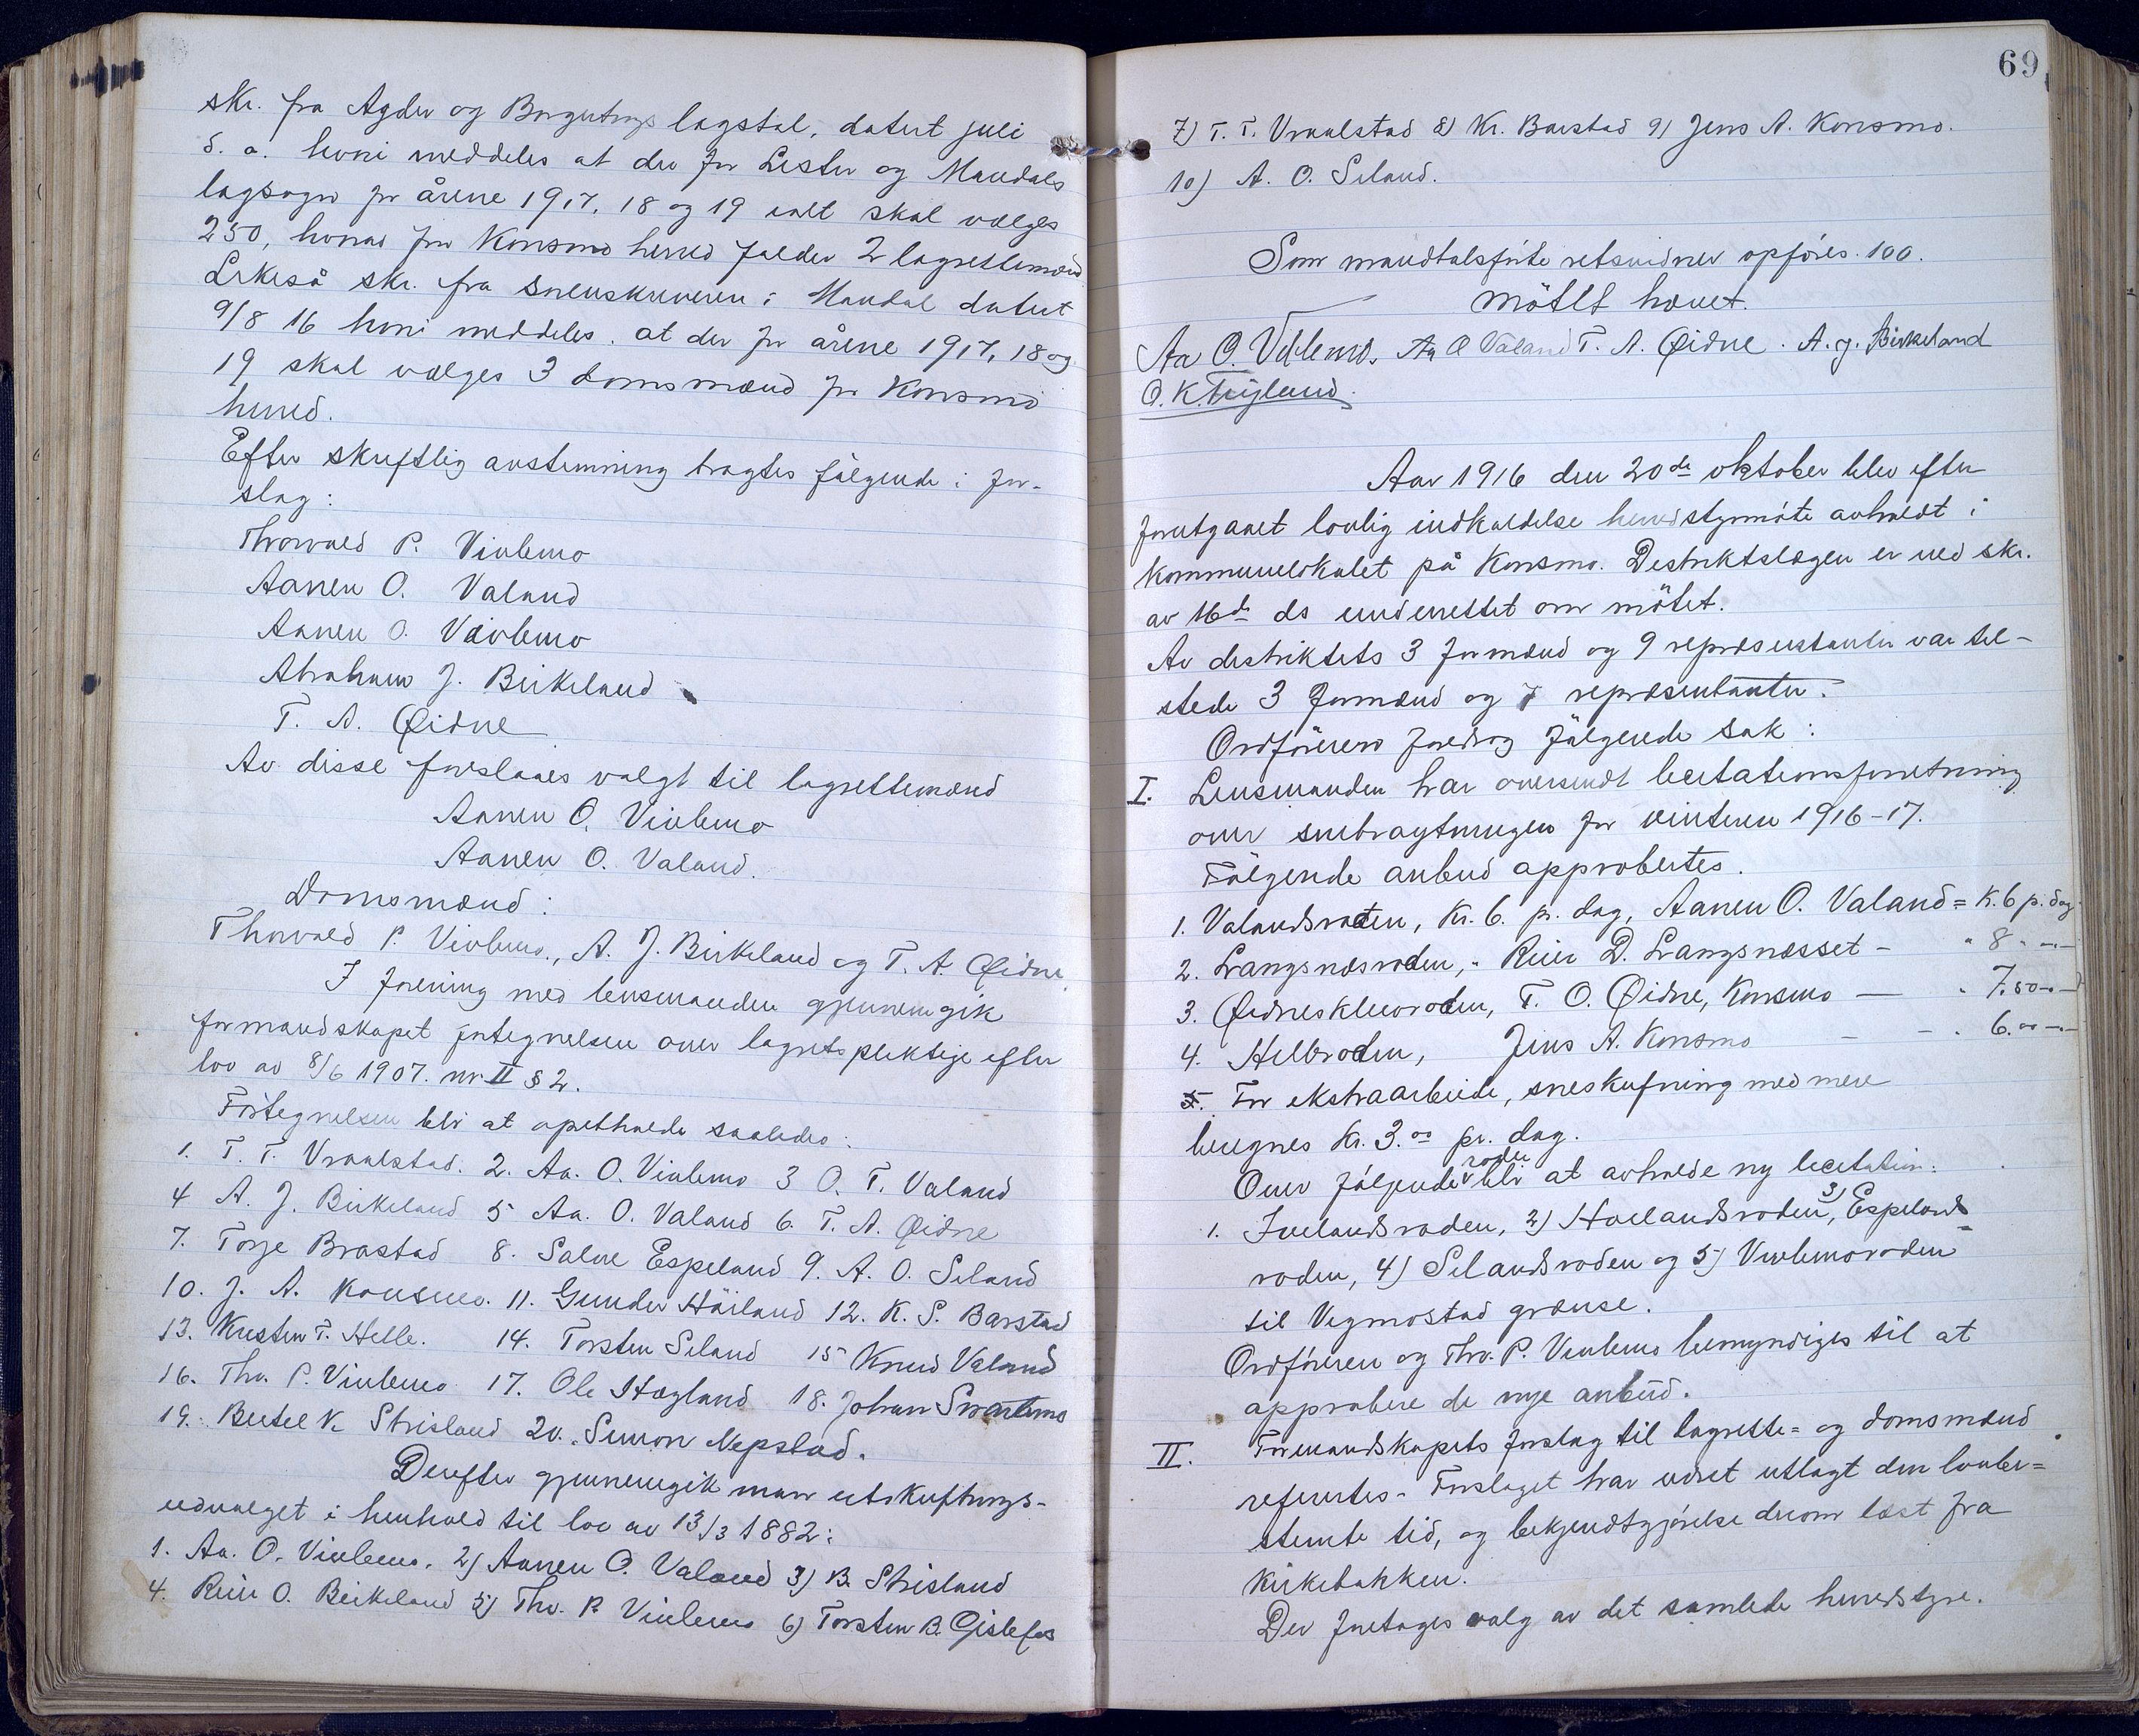 skr. fra Agder og Borgutings lagstol, datert juli
d. a. hvori meddeles at der for Lister og Mandals
lagsogn for årene 1917, 18 og 19 ialt skal vælges
250, hvorav for Konsmo herred falder 2 lagrettemænd
Likeså skr. fra sorenskriveren i Mandal datert
9/8 16 hvori meddeles at der for årene 1917, 18 og
19 skal vælges 3 domsmænd for Konsmo
herred.
Efter skriftlig avstemning bragtes følgende i for-
slag:
Thorvald P. Vivlemo
Aanen O. Valand
Aanen O. Vivlemo
Abraham J. Birkeland
T. A. Øidne
Av disse foreslaaes valgt til lagrettemænd
Aanen O. Vivlemo
Aanen O. Valand.
Domsmænd:
Thorvald P. Vivlemo., A. J. Birkeland og T. A. Øidne.
I forening med lensmanden gjennemgik
formandskapet fortegnelsen over lagretspliktige efter
lov av 8/6 1907. nr. II § 2.
Fortegnelsen blir at opretholde saaledes:
1. T. T. Vraalstad. 2. Aa. O. Vivlemo 3 O. T. Valand
4 A. J. Birkeland 5 Aa. O. Valand 6. T. A. Øidne
7. Torje Brastad 8. Salve Espeland 9. A. O. Seland
10. J. A. Konsmo. 11. Gunder Høiland 12. K. S. Barstad
13. Kristen T. Helle. 14. Torsten Seland 15 Knud Valand
16. Tho. P. Vivlemo 17. Ole Hægland 18. Johan Svartemo
19. Bertel K Strisland 20. Simon Nepstad.
Derefter gjennemgik man utskiftnings-
utvalget i henhold til lov av 13/3 1882:
1. Aa. O. Vivlemo. 2) Aanen O. Valand 3) B. Strisland
4. Reier O. Birkeland 5) Tho. P. Vivlemo 6) Torsten B. Gislefos
69
7) T. T. Vraalstad 8) Kr. Barstad 9) Jens A. Konsmo.
10) A. O. Seland.
Som mandtalsførte retsvidner opføres 100.
Møtet hævet.
Aa O. Vivlemo. Aa O Valand T. A. Øidne. A. J. Birkeland
O. K. Trygland.
Aar 1916 den 20de oktober blev efter
forutgaaet lovlig indkaldelse herredstyrmøte avholdt i
kommunelokalet på Konsmo. Distriktslægen er ved skr.
av 16de ds underrettet om møtet.
Av distriktets 3 formænd og 9 repræsentanter var til-
stede 3 formænd og 7 repræsentanter.
Ordføreren foredrog følgende sak:
I. Lensmanden har oversendt licitationsforretning
over snebrøytningen for vinteren 1916-17.
Følgende anbud approbertes.
1. Valandsroden, Kr. 6. pr. dag, Aanen O. Valand = K. 6 p. dag
2. Langsnæsroden, - Reier D. Langsnæsset - " 8 - " -
3. Øidneskleivroden, T. O. Øidne, Konsmo — " 7.50 - " -
4. Helleroden, Jens A. Konsmo - - " 6.00 - " -
5. For ekstraarbeide, sneskufning med mere
beregnes Kr. 3.00 pr. dag.
Over følgende roder blir at avholde ny licitation:
1. Ivelandsroden, 2) Hoelandsroden, 3) Espelands=
roden, 4) Selandsroden og 5) Vivlemoroden
til Vigmostad grænse.
Ordføreren og Tho. P. Vivlemo bemyndiges til at
approbere de nye anbud.
II. Formandskapets forslag til lagrette= og domsmænd
refererte​s. Forslaget har været utlagt den lovbe=
stemte tid, og bekjendtgjørelse derom læst fra
kirkebakken.
Der foretages valg av det samlede herredstyre.